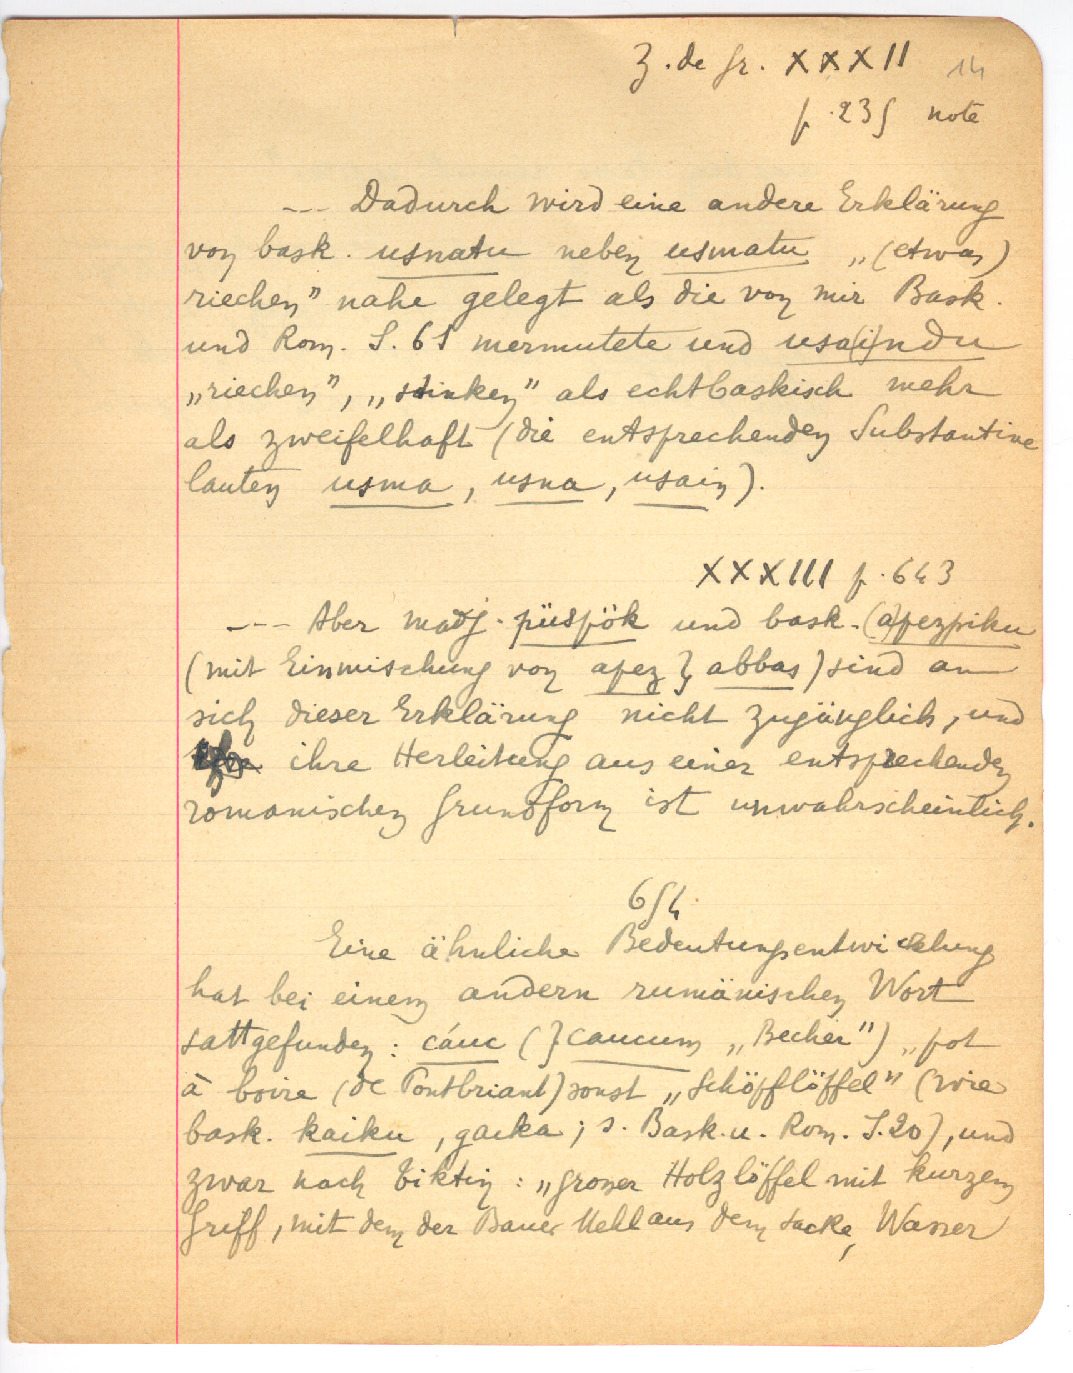 Z. de Gr. XXXII 14
p. 235 note
--- Dadurch wird eine andere Erklärung
von bask. usnatu neben usmatu „(etwas)
riechen" nahe gelegt als die von mir Bask.
und Rom. S. 61 mermutete und usa(i)ndu
„riechen", „stinken" als echtbaskisch mehr
als zweifelhaft (die entsprechenden Substantive
lauten usma, usna, usain).
XXXIII p. 643
--- Aber madj. püspök und bask. (a)pezpiku
(mit Einmischung von apez } abbas) sind an
sich dieser Erklärung nicht zugänglich, und
ihre Herleitung aus einer entsprechenden
romanischen Grundform ist unwahrscheinlich.
654.
Eine ähnliche Bedeutungsentwickelung
hat bei einem andern rumänischen Wort
sattgefunden: cáuc (} caucum „Becher") „pot
à boire (de Pontbriant) sonst „Schöpflöffel" (wie
bask. kaiku, gaika; s. Bask. u. Rom. S. 20), und
zwar nach Tiktin: „grosser Holzlöffel mit kurzem
Griff, mit dem der Bauer Mehl aus dem Sacke, Wasser